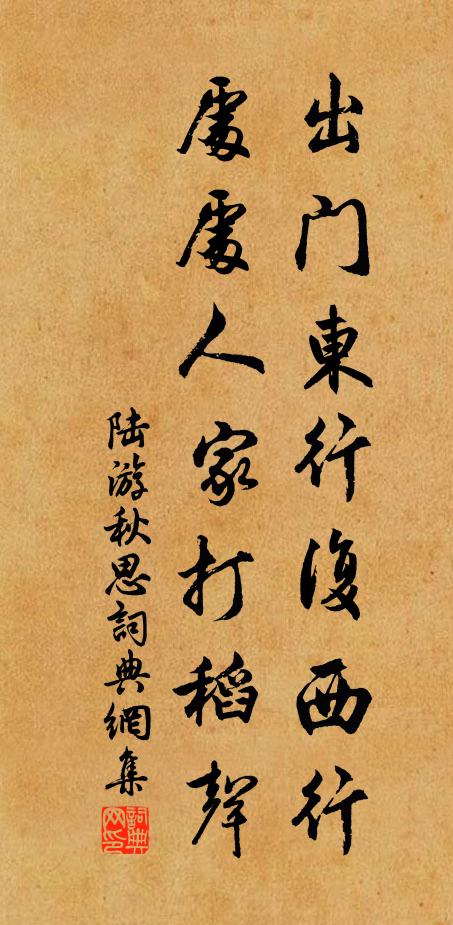 出門東行復西行
處處人家打稻聲
陆游秋思詞典網集
詞典网印